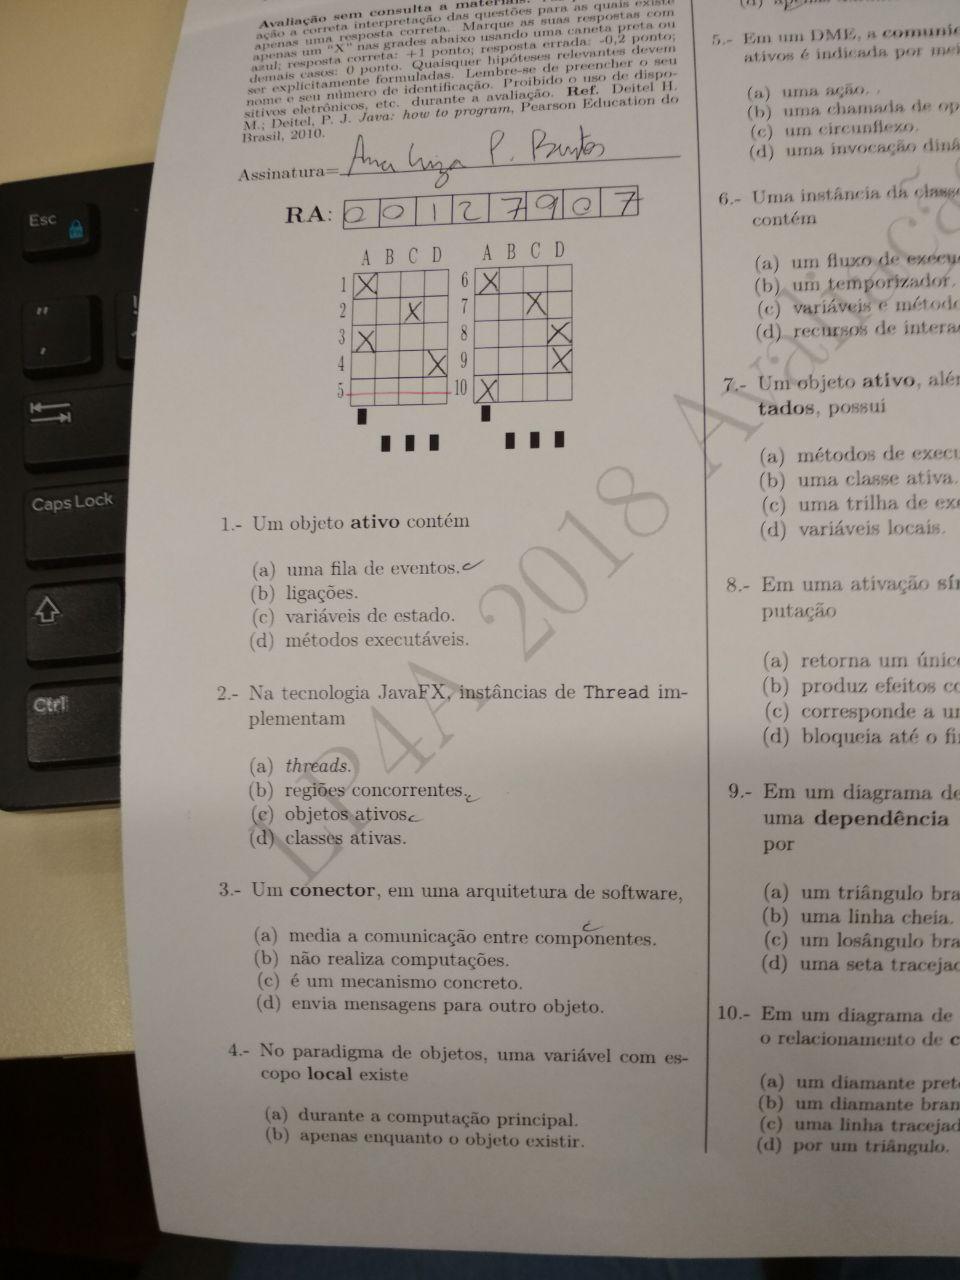 Avaliação sem consulta a materiais.
ação a correta interpretação das questões para as quais existe
apenas uma resposta correta. Marque as suas respostas com
apenas um "X" nas grades abaixo usando uma caneta preta ou
azul; resposta correta: +1 ponto; resposta errada: -0,2 ponto;
demais casos: 0 ponto. Quaisquer hipóteses relevantes devem
ser explicitamente formuladas. Lembre-se de preencher o seu
nome e seu número de identificação. Proibido o uso de dispo-
sitivos eletrônicos, etc. durante a avaliação. Ref. Deitel H.
M.; Deitel, P. J. Java: how to program, Pearson Education do
Brasil, 2010.
Assinatura= Ana Luiza P.
RA: 0 0 1 2 7 9 0 7
A B C D A B C D
1 X 6 X
2 X 7 X
3 X 8 X
4 X 9 X
5 10 X
1.- Um objeto ativo contém
(a) uma fila de eventos.
(b) ligações.
(c) variáveis de estado.
(d) métodos executáveis.
2.- Na tecnologia JavaFX, instâncias de Thread im-
plementam
(a) threads.
(b) regiões concorrentes.
(c) objetos ativos
(d) classes ativas.
3.- Um conector, em uma arquitetura de software,
(a) media a comunicação entre componentes.
(b) não realiza computações.
(c) é um mecanismo concreto.
(d) envia mensagens para outro objeto.
4.- No paradigma de objetos, uma variável com es-
copo local existe
(a) durante a computação principal.
(b) apenas enquanto o objeto existir.
5.- Em um DME, a comunic
ativos é indicada por mei
(a) uma ação.
(b) uma chamada de op
(c) um circunflexo.
(d) uma invocação dinâ
6.- Uma instância da classe
contém
(a) um fluxo de execu
(b) um temporizador.
(c) variáveis e método
(d) recursos de intera
7.- Um objeto ativo, alé
tados, possui
(a) métodos de execu
(b) uma classe ativa.
(c) uma trilha de exe
(d) variáveis locais.
8.- Em uma ativação sín
putação
(a) retorna um únic
(b) produz efeitos co
(c) corresponde a u
(d) bloqueia até o fi
9.- Em um diagrama de
uma dependência
por
(a) um triângulo bra
(b) uma linha cheia.
(c) um losângulo bra
(d) uma seta tracejad
10.- Em um diagrama de
o relacionamento de c
(a) um diamante pret
(b) um diamante bran
(c) uma linha tracejad
(d) por um triângulo.
LP4A 2018 Avaliação
Esc
Caps Lock
Ctrl